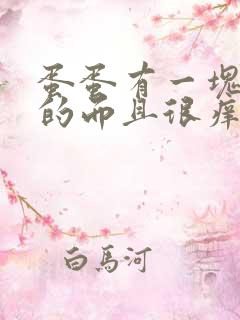 蛋蛋有一塊
的而且很癢
白馬河